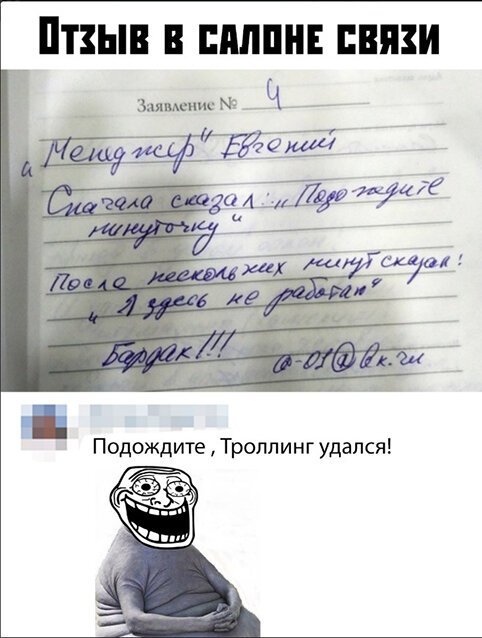 Отзыв в салоне связи
Заявление № 4
"Менеджер" Евгений
Сначала сказал: „Подождите
минуточку"
После нескольких минут сказал:
„Я здесь не работаю"
Бардак!!!
Подождите , Троллинг удался!